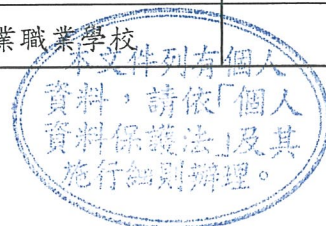 業職業學校
本文件列有個人
資料，請依「個人
資料保護法」及其
施行細則辦理。